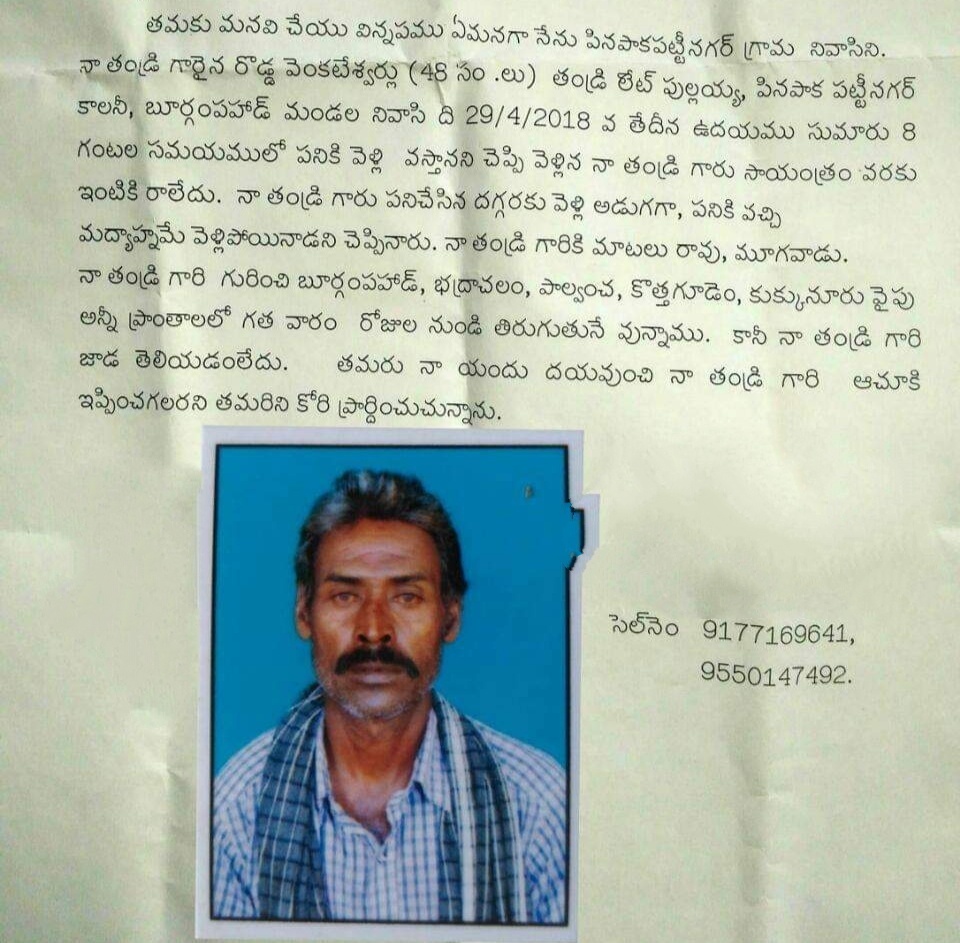 తమకు మనవి చేయు విన్నపము ఏమనగా నేను పినపాకపట్టీనగర్ గ్రామ నివాసిని.
నా తండ్రి గారైన రొడ్డ వెంకటేశ్వర్లు (48 సం .లు) తండ్రి లేట్ పుల్లయ్య, పినపాక పట్టీనగర్
కాలనీ, బూర్గంపహాడ్ మండల నివాసి ది 29/4/2018 వ తేదీన ఉదయము సుమారు 8
గంటల సమయములో పనికి వెళ్లి వస్తానని చెప్పి వెళ్లిన నా తండ్రి గారు సాయంత్రం వరకు
ఇంటికి రాలేదు. నా తండ్రి గారు పనిచేసిన దగ్గరకు వెళ్లి అడుగగా, పనికి వచ్చి
మద్యాహ్నమే వెళ్లిపోయినాడని చెప్పినారు. నా తండ్రి గారికి మాటలు రావు, మూగవాడు.
నా తండ్రి గారి గురించి బూర్గంపహాడ్, భద్రాచలం, పాల్వంచ, కొత్తగూడెం, కుక్కునూరు వైపు
అన్నీ ప్రాంతాలలో గత వారం రోజుల నుండి తిరుగుతునే వున్నాము. కానీ నా తండ్రి గారి
జాడ తెలియడంలేదు. తమరు నా యందు దయవుంచి నా తండ్రి గారి ఆచూకి
ఇప్పించగలరని తమరిని కోరి ప్రార్దించుచున్నాను.
సెల్‌నెం 9177169641,
9550147492.